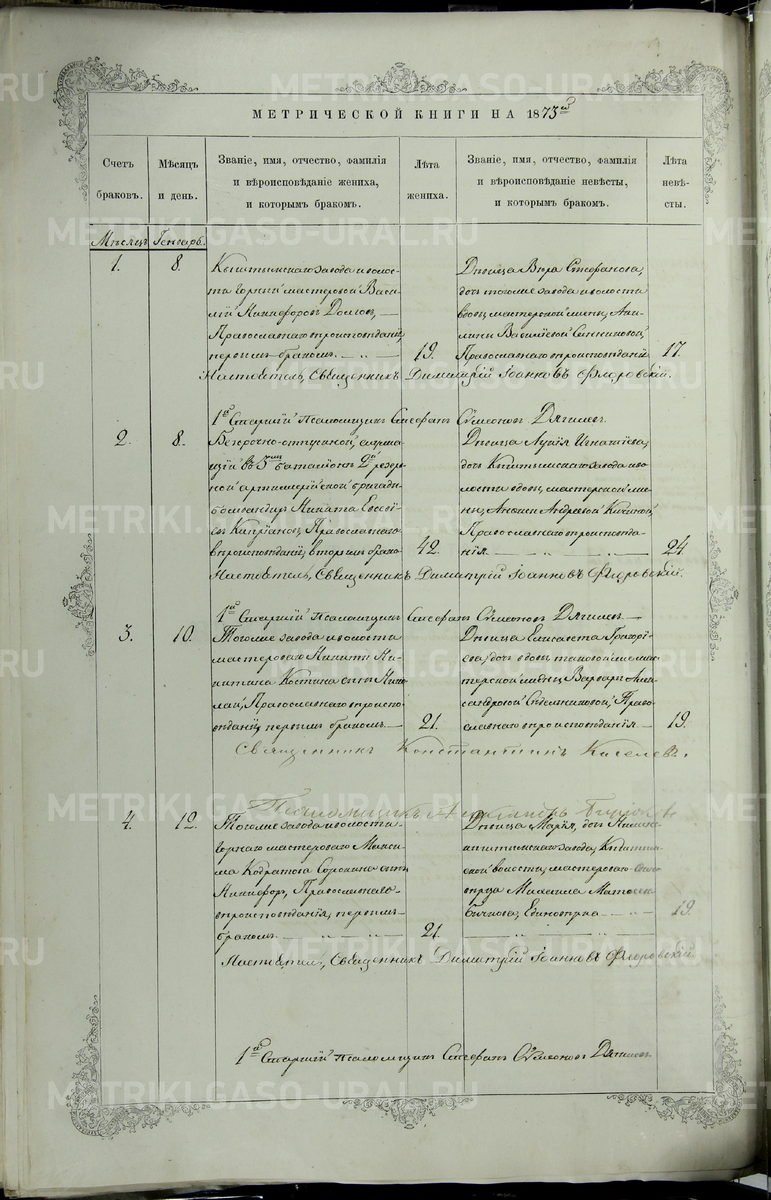 МЕТРИЧЕСКОЙ КНИГИ НА 1873й
Счетъ браковъ.
Мѣсяцъ и день.
Званіе, имя, отчество, фамилія
и вѣроисповѣданіе жениха,
и которымъ бракомъ.
Лѣта жениха.
Званіе, имя, отчество, фамилія
и вѣроисповѣданіе невѣсты,
и которымъ бракомъ.
Лѣта невѣ-
сты.
Мѣсяцъ Генварь.
1.
8.
Кыштымскаго завода и волос-
ти горный мастеровой Васи-
лій Никифоровъ Долговъ,
Православнаго вѣроисповѣданія,
первымъ бракомъ.
19.
Дѣвица Вѣра Стефанова,
дочь тогоже завода и волости
вдовы мастерской жены, Аки-
лины Васильевой
Православнаго вѣроисповѣданія
17.
Настоятель, Священникъ Димитрій Іоанновъ Флоровскій.
1й Старшій Псаломщикъ Стефанъ Сѵмеоновъ Дягилевъ.
2.
8.
Безсрочно-отпускной, служа-
щій въ 5мъ баталіонѣ 2й резер-
ной артиллерійской бригады
бомбандиръ Никита Евсѣе-
въ Кипріяновъ, Православнаго
вѣроисповѣданія, вторымъ брако-
42.
Дѣвица Лукія Игнатіева,
дочь Кыштымскаго завода и во-
лости вдовы, мастерской же-
ны, Андреевой
Православнаго вѣроисповѣда-
нія
24.
Настоятель, Священникъ Димитрій Іоанновъ Флоровскій.
1й Старшій Псаломщикъ Стефанъ Сѵмеоновъ Дягилевъ
3.
10.
Тогоже завода и волости
мастероваго Никиты Ни-
китина Костина сынъ Нико-
лай, Православнаго вѣроиспо-
вѣданія, первымъ бракомъ
21.
Дѣвица Елисавета Григорі-
ева, дочь вдовы таковой же мас-
терской жены Варвары Алек-
сандровой Сѣдельниковой, Право-
славнаго вѣроисповѣданія
19.
Священникъ Константинъ Киселевъ.
Псаломщикъ Александръ Бирюковъ
4.
12.
Тогоже завода и волости,
горнаго мастероваго Макси-
ма Кодратова Сорокина сынъ
Никифоръ, Православнаго
вѣроисповѣданія, первымъ
бракомъ.
21.
Дѣвица Марія, дочь Нижне-
кыштымскаго завода, Кыштым-
ской волости, мастероваго едино-
вѣрца Михаила Матвѣева
Бычкова, Единовѣрка
19.
Настоятель, Священникъ Димитрій Іоанновъ Флоровскій.
1й Старшій Псаломщикъ Стефанъ Сѵмеоновъ Дягилевъ
METRIKI.GASO-URAL.RU